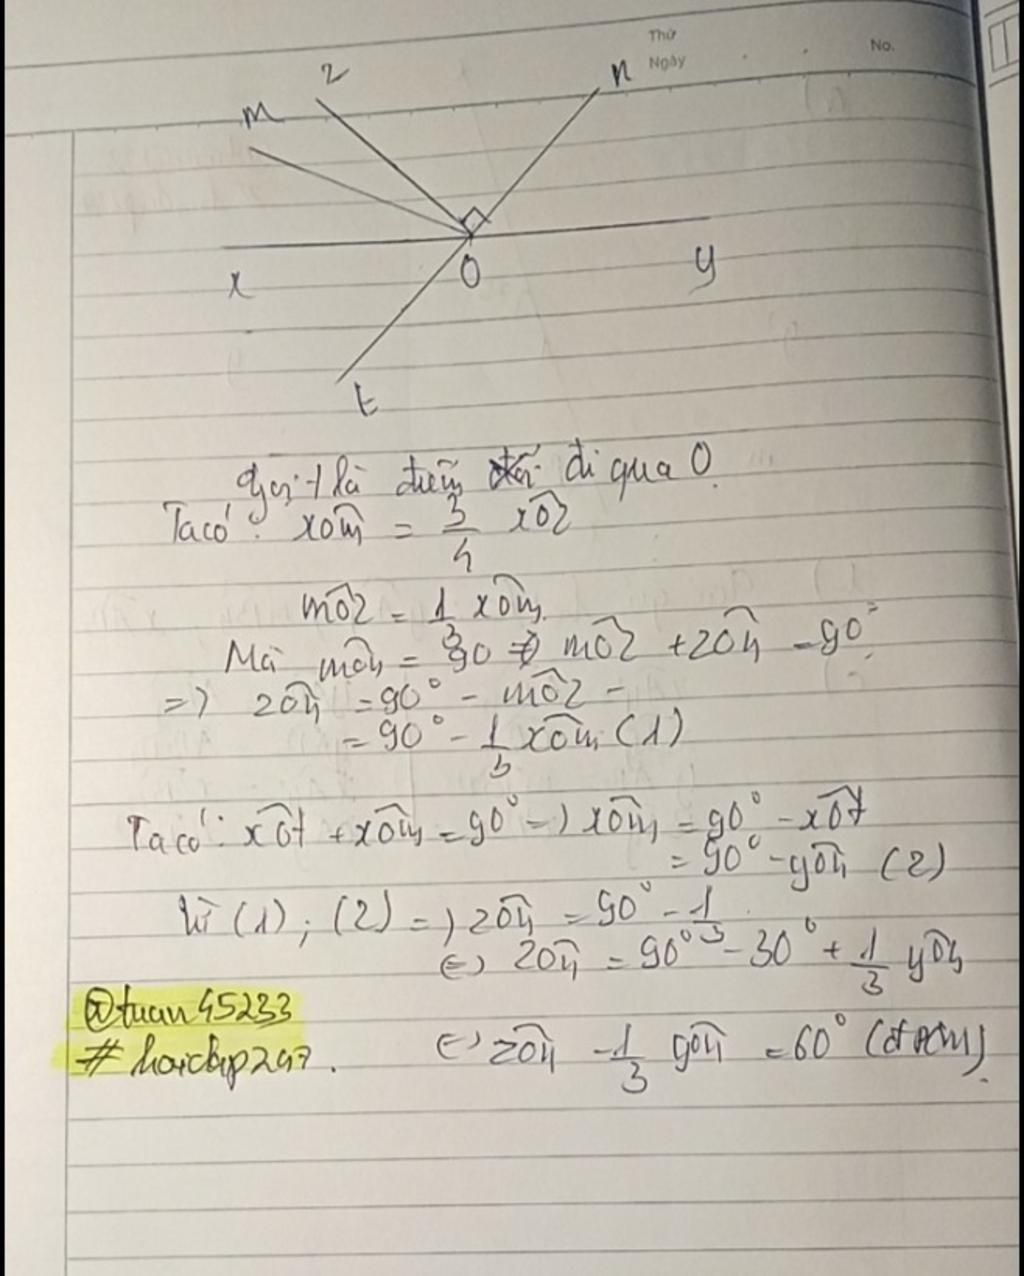 Thứ
Ngày
No.
m
z
n
x
O
y
t
Gọi t là điểm đi qua O.
Ta có: xOm = 3/4 xOz
mOz = 1/3 xOm.
Mà mOn = 90 => mOz + zOn = 90°
=> zOn = 90° - mOz -
= 90° - 1/3 xOm (1)
Ta có: xOt + xOm = 90° => xOm = 90° - xOt
= 90° - yOn (2)
Từ (1); (2) => zOn = 90° - 1/3
<=> zOn = 90° - 30° + 1/3 yOn
@tuan45233
<=> zOn - 1/3 yOn = 60° (đpcm).
#hoidap247.